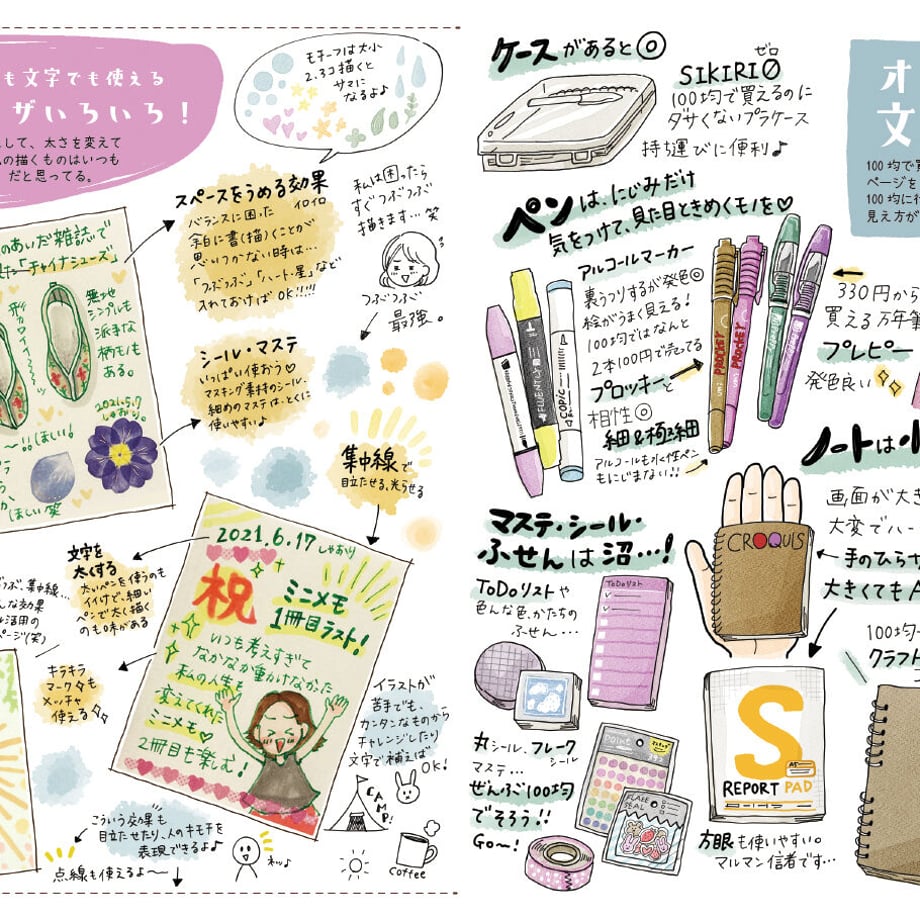 も文字でも使える
ザいろいろ！
して、太さを変えて
の描くものはいつも
だと思ってる。
モチーフは大小
2、3コ描くと
サマに
なるよ♪
スペースをうめる効果
バランスに困った イロイロ
余白に書く(描く)ことが
思いつかない時は…
「つぶつぶ」「ハート・星」など
入れておけばOK!!!!
私は困ったら
すぐつぶつぶ
描きます…笑
つぶつぶ
最強。
のあいだ雑誌で
見た「チャイナシューズ」
無地
シンプルも
派手な
柄モノも
ある。
2021.5.7
しゃおり。
!!ほしい!
ほしい笑
シール・マステ
いっぱい使おう♡
マスキング素材のシール、
細めのマステは、とくに
使いやすい♪
集中線で
目立たせる、光らせる
文字を
太くする
太いペンを使うのも
イイけど、細い
ペンで太く描く
のも味がある
つぶ、集中線…
んな効果
ル活用の
ページ(笑)
キラキラ
マーク✧も
メッチャ
使える✧
2021.6.17 しゃおり
祝 ミニメモ
1冊目ラスト!
いつも考えすぎて
なかなか動かけなかった
私の人生を
変えてくれた
ミニメモ♡
2冊目も楽しむ!
イラストが
苦手でも
カンタンなものから
チャレンジしたり
文字で補えば
OK!
CAMP!
coffee
ネッ♪
こういう効果も
目立たせたり、人のキモチを
表現できるよ♪
点線も使えるよ〜
ケースがあると◎
ゼロ
SIKIRI0
100均で買えるのに
ダサくないプラケース
持ち運びに便利♪
オ
文
100均で買
ページを
100均に行
見え方が
ペンは、にじみだけ
気をつけて、見た目ときめくモノを♡
アルコールマーカー
裏うつりするが発色◎
絵がうまく見える!
100均ではなんと
2本100円で売ってる
プロッキーと
相性◎
細&極細
アルコールも水性ペン
もにじまない!!
COPIC
PROCKEY
PROCKEY
330円から
買える万年筆
プレピー
発色良い✧
ノートは小
画面が大き
大変でハー
手のひらサ
大きくてもA
CROQUIS
100均
クラフト
マステ・シール・
ふせんは沼…!
ToDoリストや
色んな色、かたちの
ふせん…
ToDoリスト
丸シール、フレーク
シール
マステ…
ぜんぶ100均
でそろう!!
Go〜!
POINT
FLAKE
SEAL
S
A5
REPORT PAD
方眼も使いやすい。
マルマン信者です…